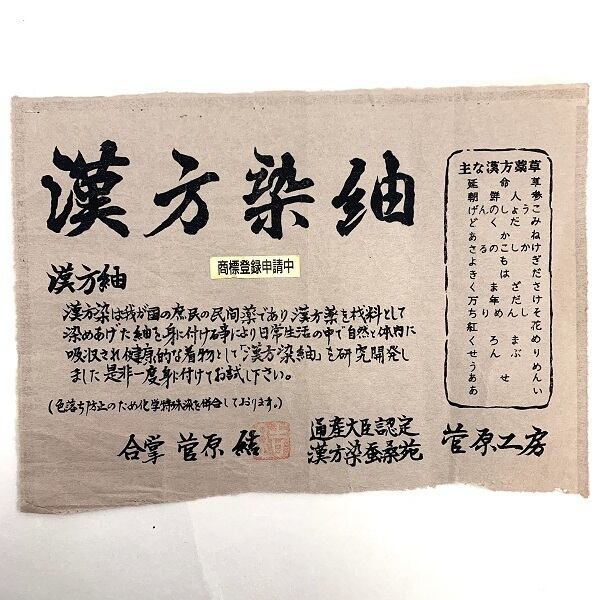 漢方染紬
商標登録申請中
漢方紬
漢方染は我が国の庶民の民間薬であり漢方薬を材料として
染めあげた紬を身に付ける事により日常生活の中で自然と体内に
吸収され健康的な着物として「漢方染紬」を研究開発し
ました是非一度身に付けてお試し下さい。
(色落ち防止のため化学特殊染を併合しております。)
合掌 菅原
通産大臣認定
漢方染蚕桑苑
菅原工房
主な漢方薬草
延命草
朝鮮人参
げんのしょうこ
どくだみ
あかね
さるのこしかけ
よもぎ
きはだ
くまざさ
万年だけ
ちりめんしそ
紅花
くろまめ
せんぶり
うめん
あせい